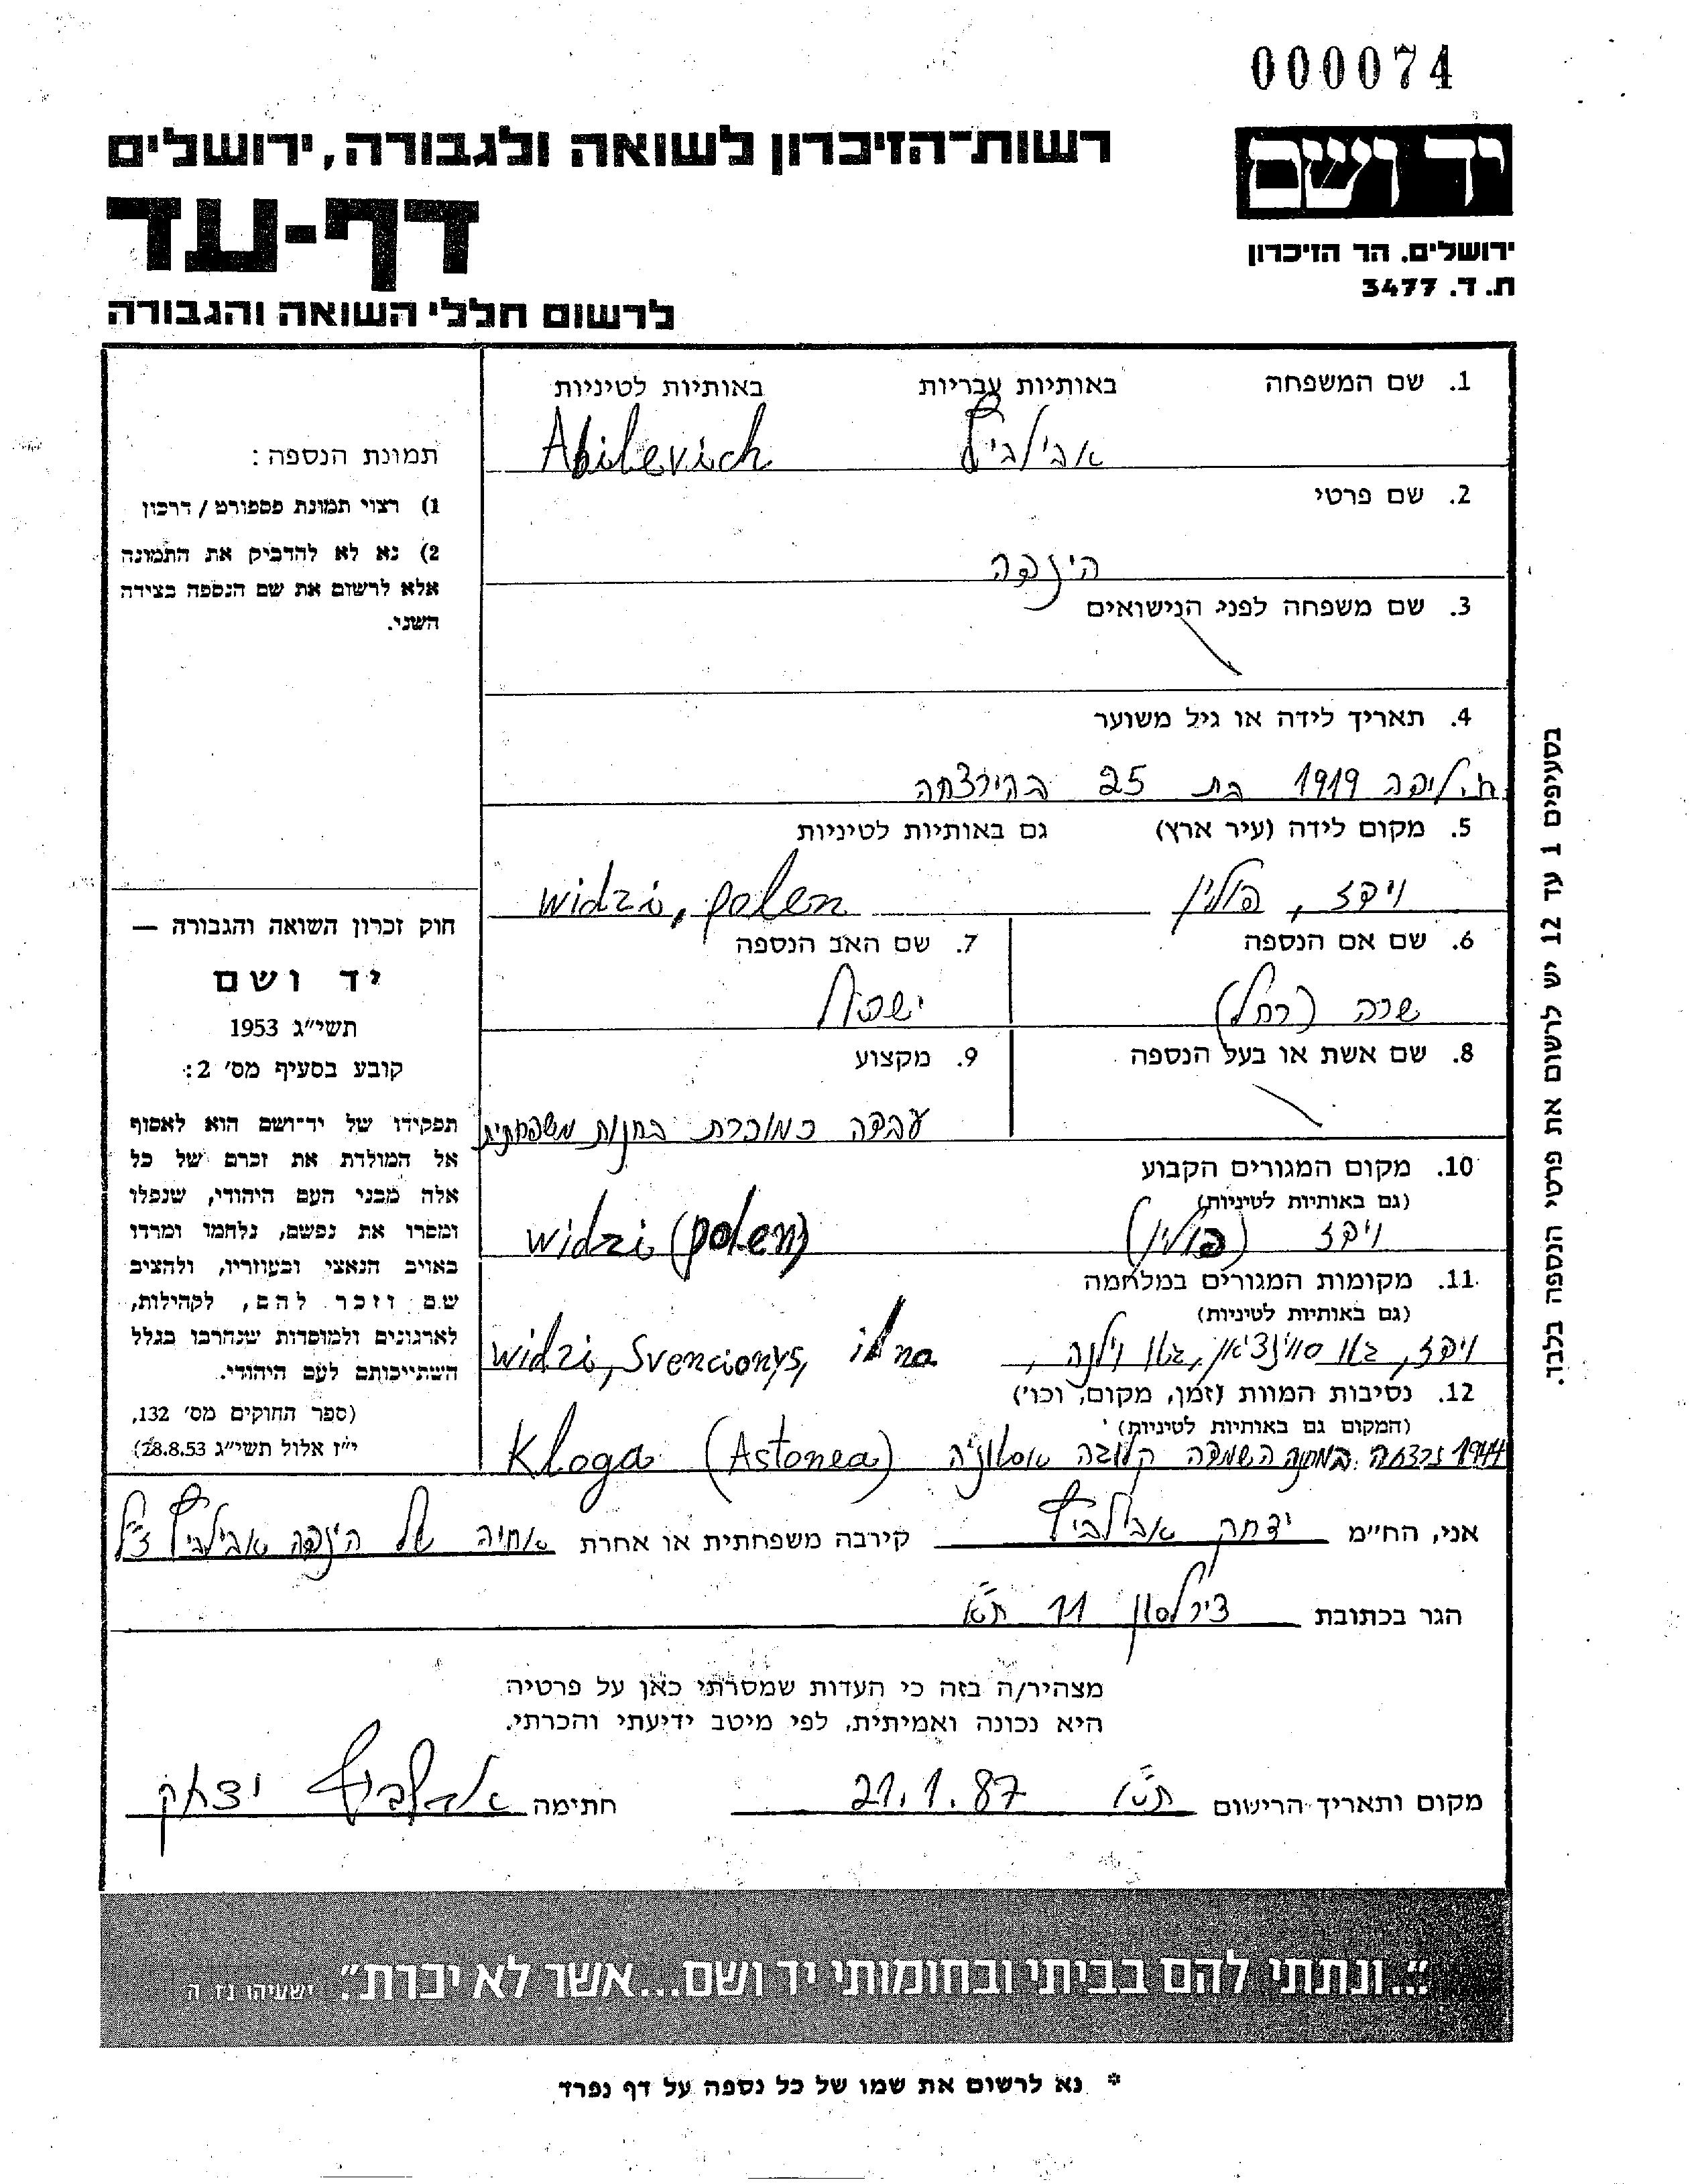 000074
יד ושם
רשות־הזיכרון לשואה ולגבורה, ירושלים
דף-עד
ירושלים. הר הזיכרון
ת. ד. 3477
לרשום חללי השואה והגבורה
1. שם המשפחה באותיות עבריות באותיות לטיניות
אבילביץ Abilevich
2. שם פרטי
הינדה
3. שם משפחה לפני הנישואים
4. תאריך לידה או גיל משוער
1919 בת 25 בהירצחה
5. מקום לידה (עיר ארץ) גם באותיות לטיניות
וידז, פולין widzi, polen
6. שם אם הנספה
שרה (רחל)
7. שם האב הנספה
ישראל
8. שם אשת או בעל הנספה
9. מקצוע
עבדה כמוכרת בחנות משפחתית
10. מקום המגורים הקבוע
(גם באותיות לטיניות)
וידז (פולין) widzi (polen)
11. מקומות המגורים במלחמה
(גם באותיות לטיניות)
וידז, גטו סווינציאן, גטו וילנה, widzi, Svencionys, ilna
12. נסיבות המוות (זמן, מקום, וכו')
(המקום גם באותיות לטיניות)
1944 נרצחה במחנה השמדה קלוגה אסטוניה Kloga (Astonea)
תמונת הנספה:
1) רצוי תמונת פספורט / דרכון
2) נא לא להדביק את התמונה
אלא לרשום את שם הנספה בצידה
השני.
חוק זכרון השואה והגבורה —
יד ושם
תשי"ג 1953
קובע בסעיף מס' 2:
תפקידו של יד־ושם הוא לאסוף
אל המולדת את זכרם של כל
אלה מבני העם היהודי, שנפלו
ומסרו את נפשם, נלחמו ומרדו
באויב הנאצי ובעוזריו, ולהציב
שם וזכר להם, לקהילות,
לארגונים ולמוסדות שנחרבו בגלל
השתייכותם לעם היהודי.
(ספר החוקים מס' 132,
י"ז אלול תשי"ג 28.8.53)
בסעיפים 1 עד 12 יש לרשום את פרטי הנספה בלבד.
אני, הח"מ יצחק אבילביץ קירבה משפחתית או אחרת אחיה של הינדה אבילביץ ז"ל
הגר בכתובת צירלסון 11 ת"א
מצהיר/ה בזה כי העדות שמסרתי כאן על פרטיה
היא נכונה ואמיתית, לפי מיטב ידיעתי והכרתי.
מקום ותאריך הרישום ת"א 21.1.87 חתימה אבילביץ יצחק
"...ונתתי להם בביתי ובחומותי יד ושם...אשר לא יכרת". ישעיהו נז ה
* נא לרשום את שמו של כל נספה על דף נפרד